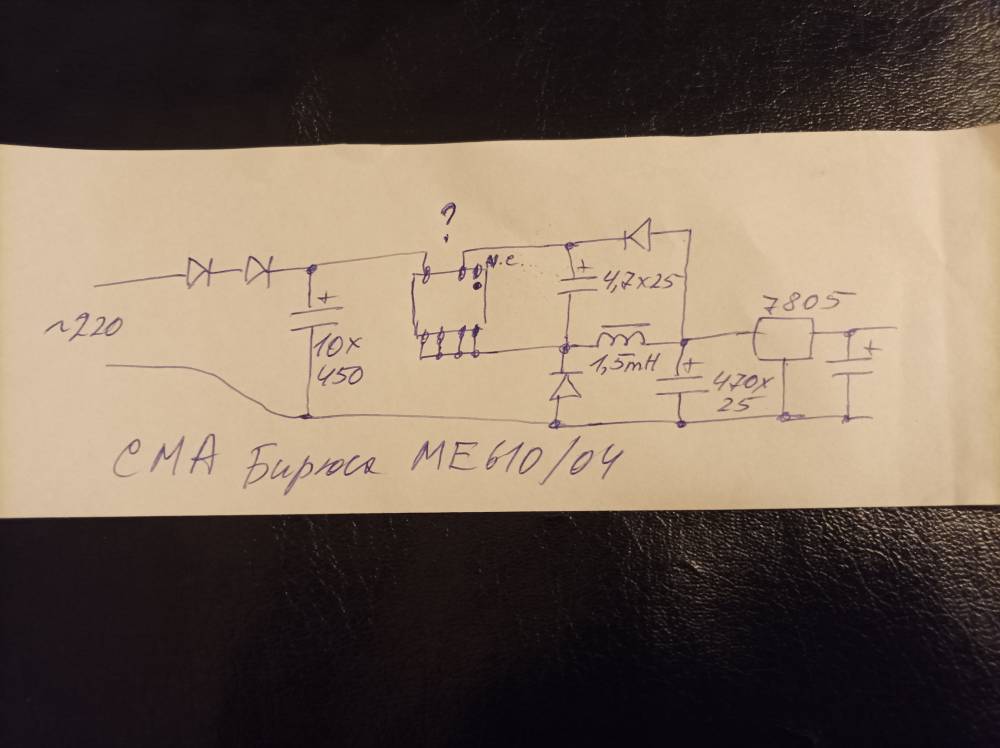 ?
N.C.
4,7x25
7805
~220
10x
450
1,5mH
470x
25
СМА Бирюса МЕ610/04